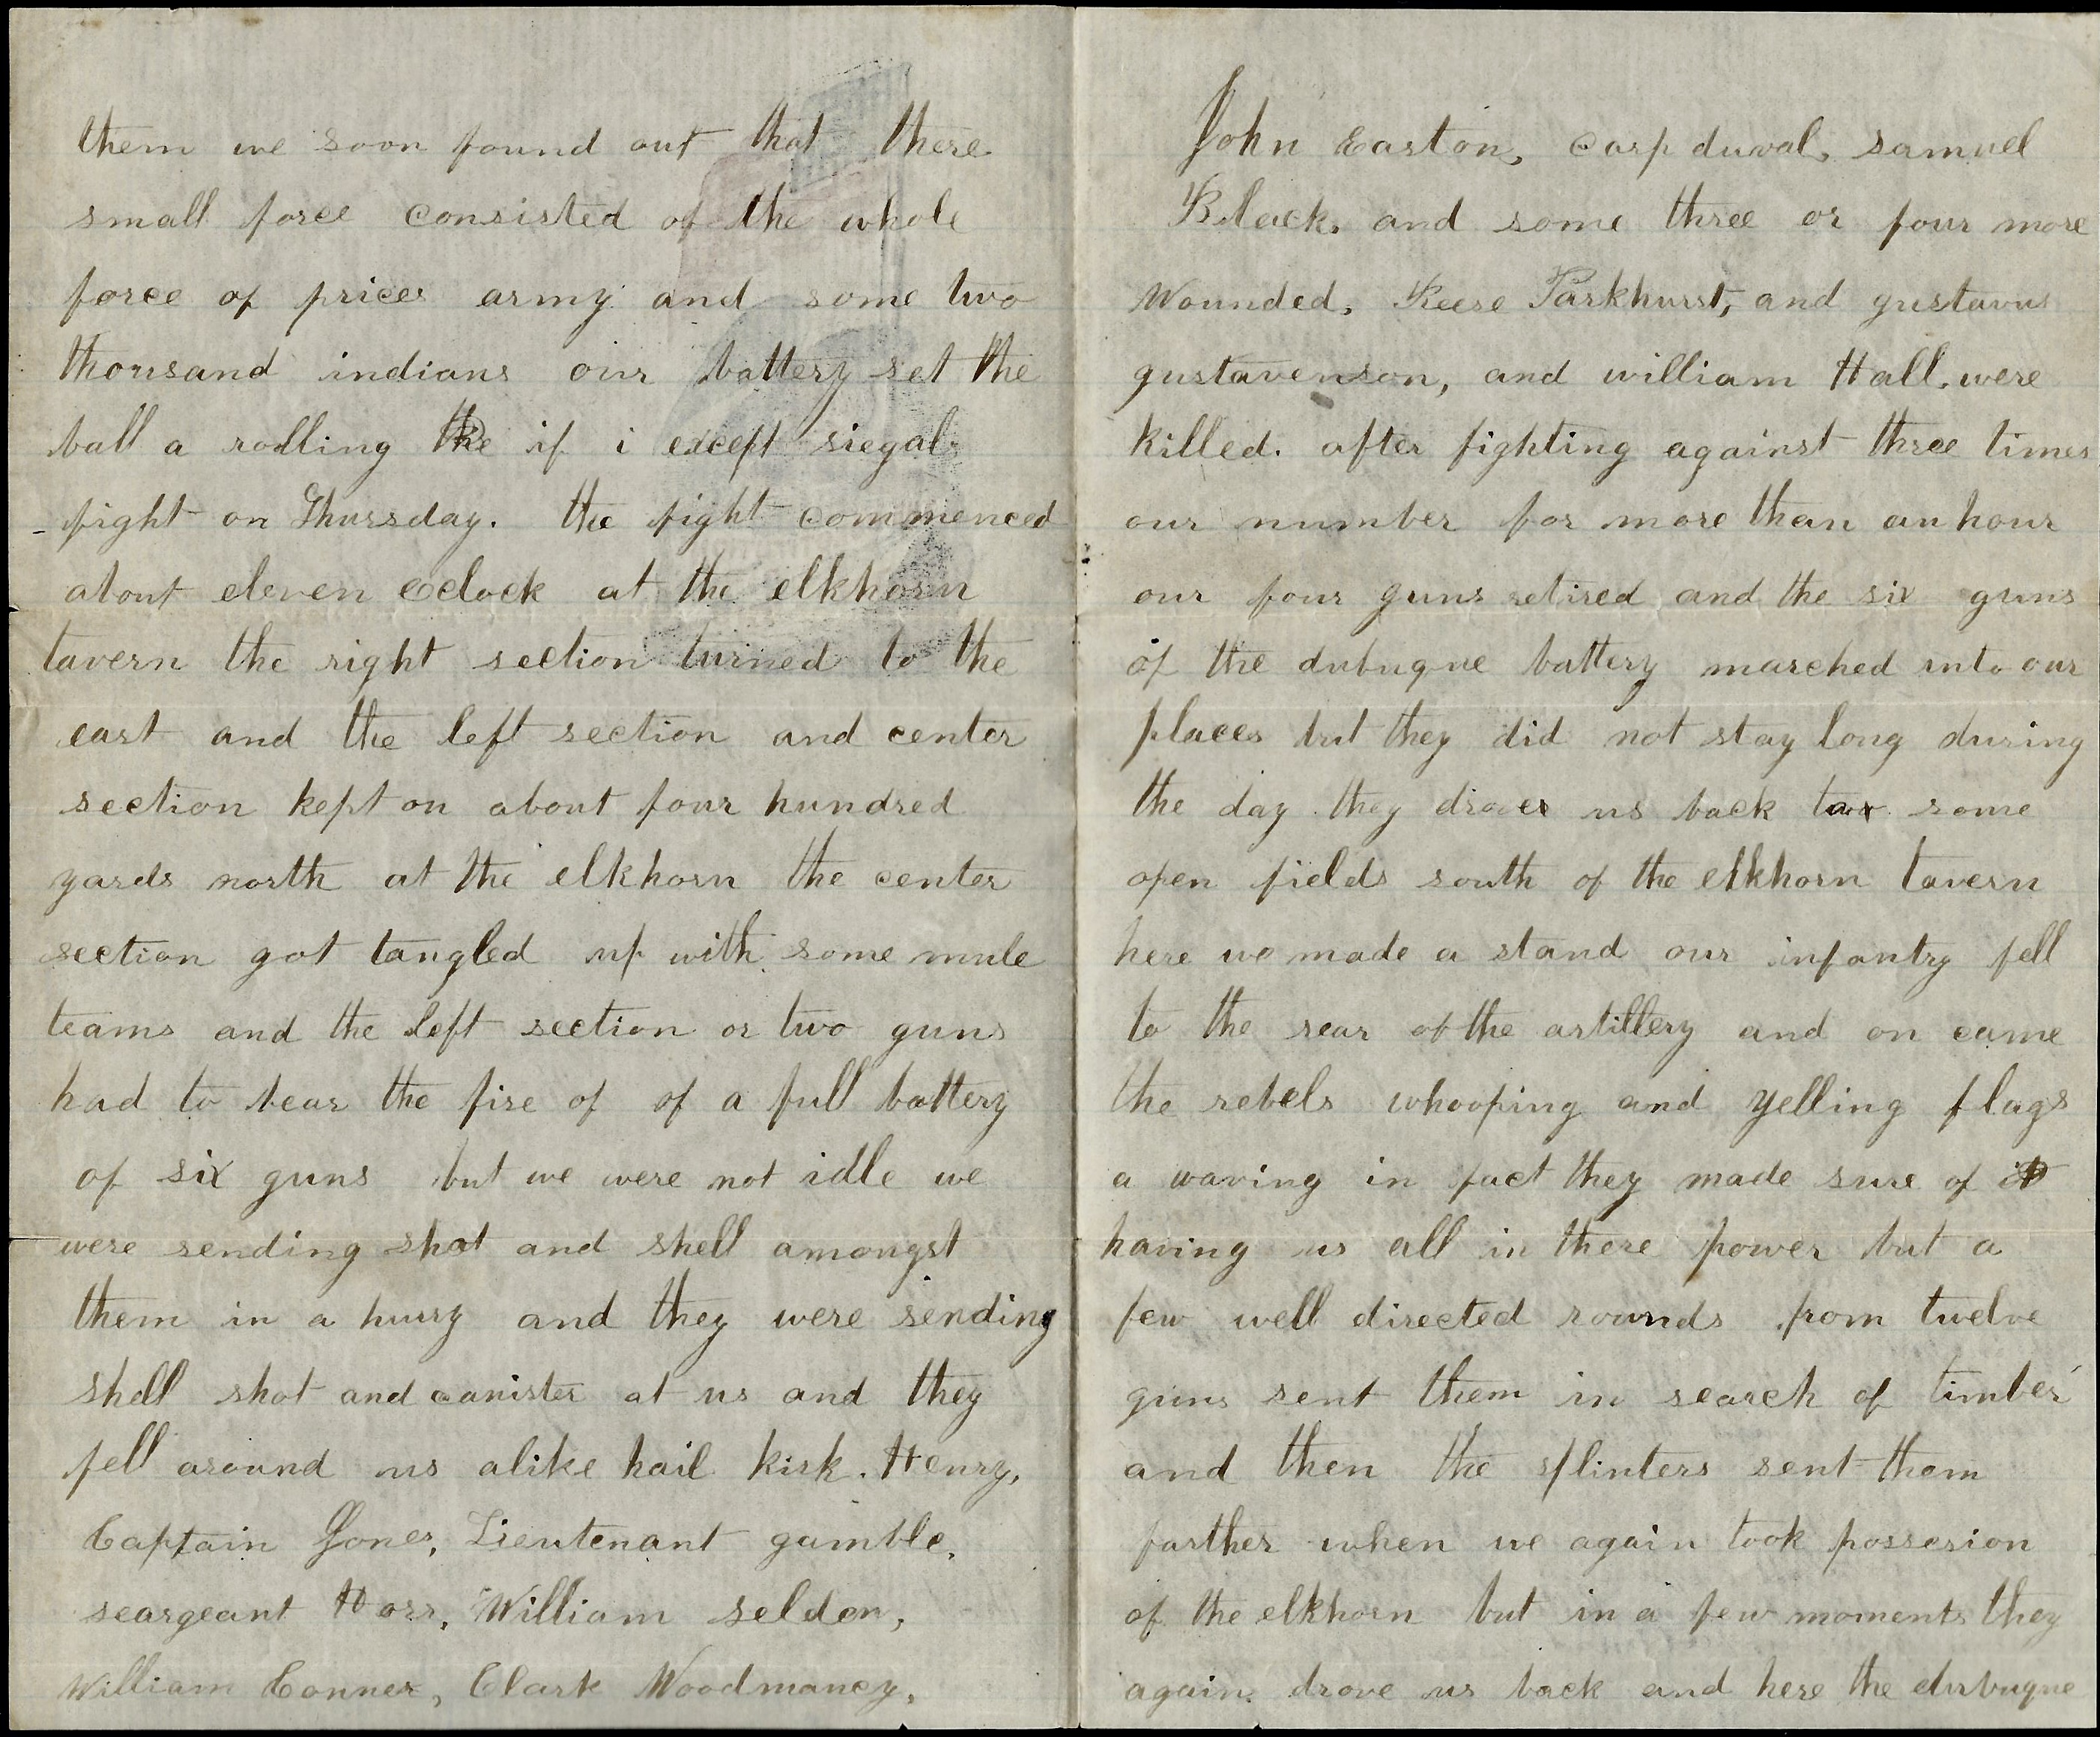 them we soon found out that there
small force consisted of the whole
force of prices army and some two
thousand indians our battery set the
ball a rolling the if i except siegals
fight on Thursday. the fight commenced
about eleven oclock at the elkhorn
tavern the right section turned to the
east and the left section and center
section kept on about four hundred
yards north at the elkhorn the center
section got tangled up with some mule
teams and the left section or two guns
had to bear the fire of of a full battery
of six guns but we were not idle we
were sending shot and shell amongst
them in a hurry and they were sending
shell shot and canister at us and they
fell around us alike hail kirk. Henry,
Captain Jones, Lieutenant gamble,
seargeant Horr, William selden,
William Conner, Clark Woodmancy,
John Easton, corp duval, samuel
Black, and some three or four more
Wounded, Reese Parkhurst, and gustavus
gustavenson, and william Hall, were
killed. after fighting against three times
our number for more than an hour
our four guns retired and the six guns
of the dubuque battery marched into our
places but they did not stay long during
the day they drove us back to some
open fields south of the elkhorn tavern
here we made a stand our infantry fell
to the rear of the artillery and on came
the rebels whooping and yelling flags
a waving in fact they made sure of
having us all in there power but a
few well directed rounds from twelve
guns sent them in search of timber
and then the splinters sent them
farther when we again took possesion
of the elkhorn but in a few moments they
again drove us back and here the dubuque